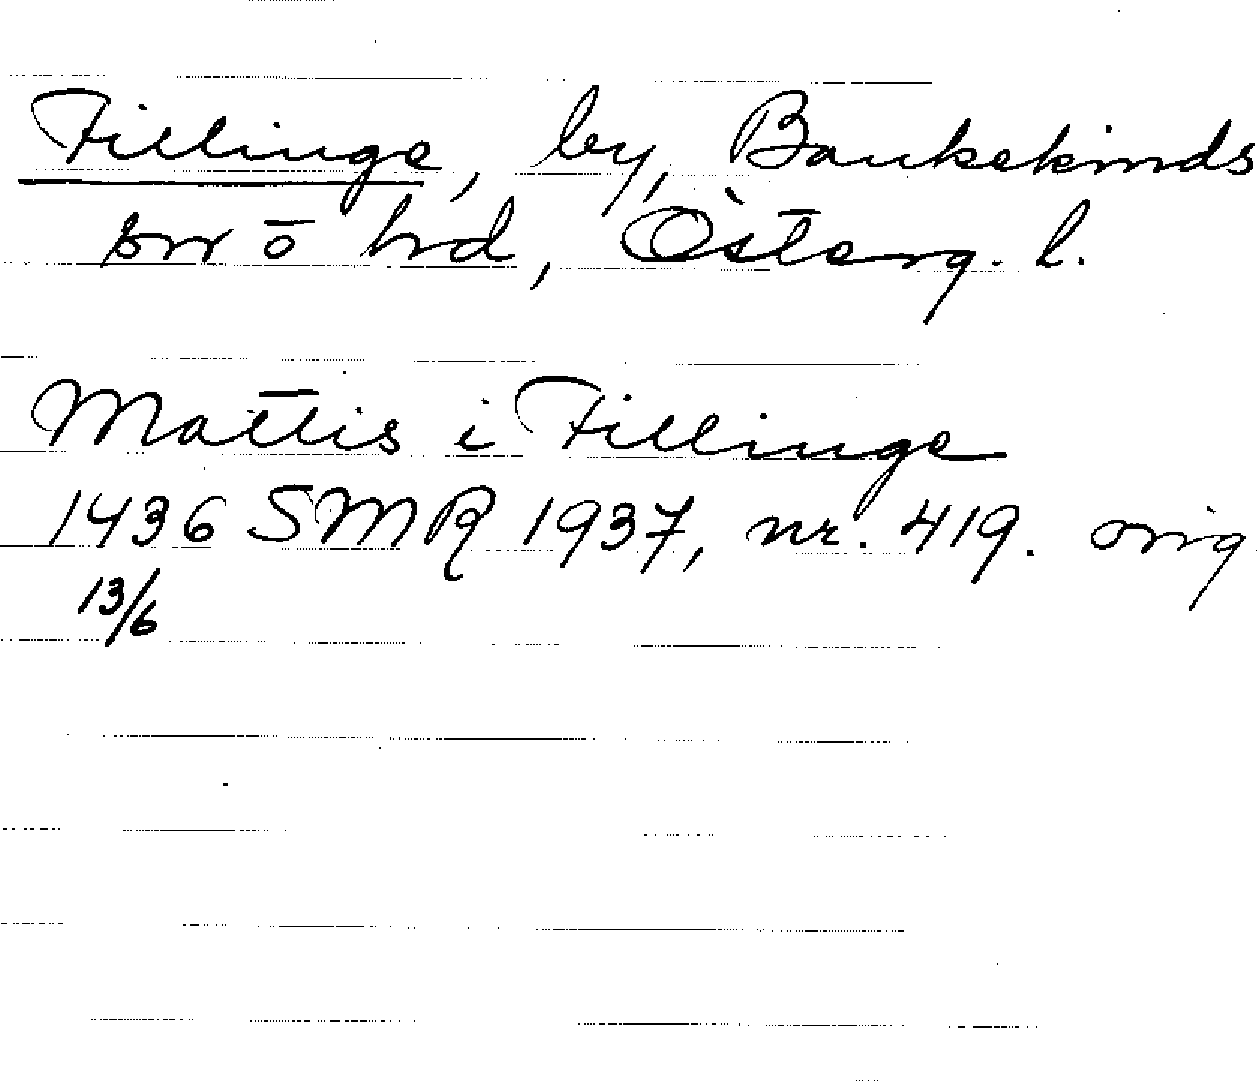 Fillinge, by, Bankekinds
srr ō hrd, Österg. l.
Mattis i Fillinge
1436 SMR 1937, nr. 419. orig
13/6